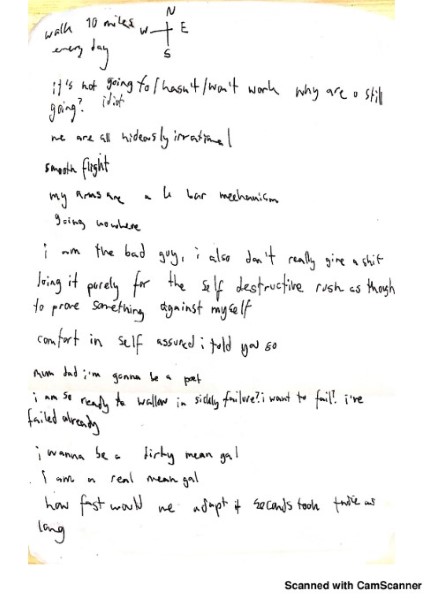 walk 10 miles
N
W E
every day
S
it's not going to/hasn't/won't work why are u still
going? idiot
we are all hideously irrational
smooth flight
my arms are a 4 bar mechanism
going nowhere
i am the bad guy, i also don't really give a shit
doing it purely for the self destructive rush as though
to prove something against myself
comfort in self assured i told you so
mum dad i'm gonna be a poet
i am so ready to wallow in sickly failure? i want to fail? i've
failed already
i wanna be a dirty mean gal
I am a real mean gal
how fast would we adapt if seconds took twice as
long
Scanned with CamScanner